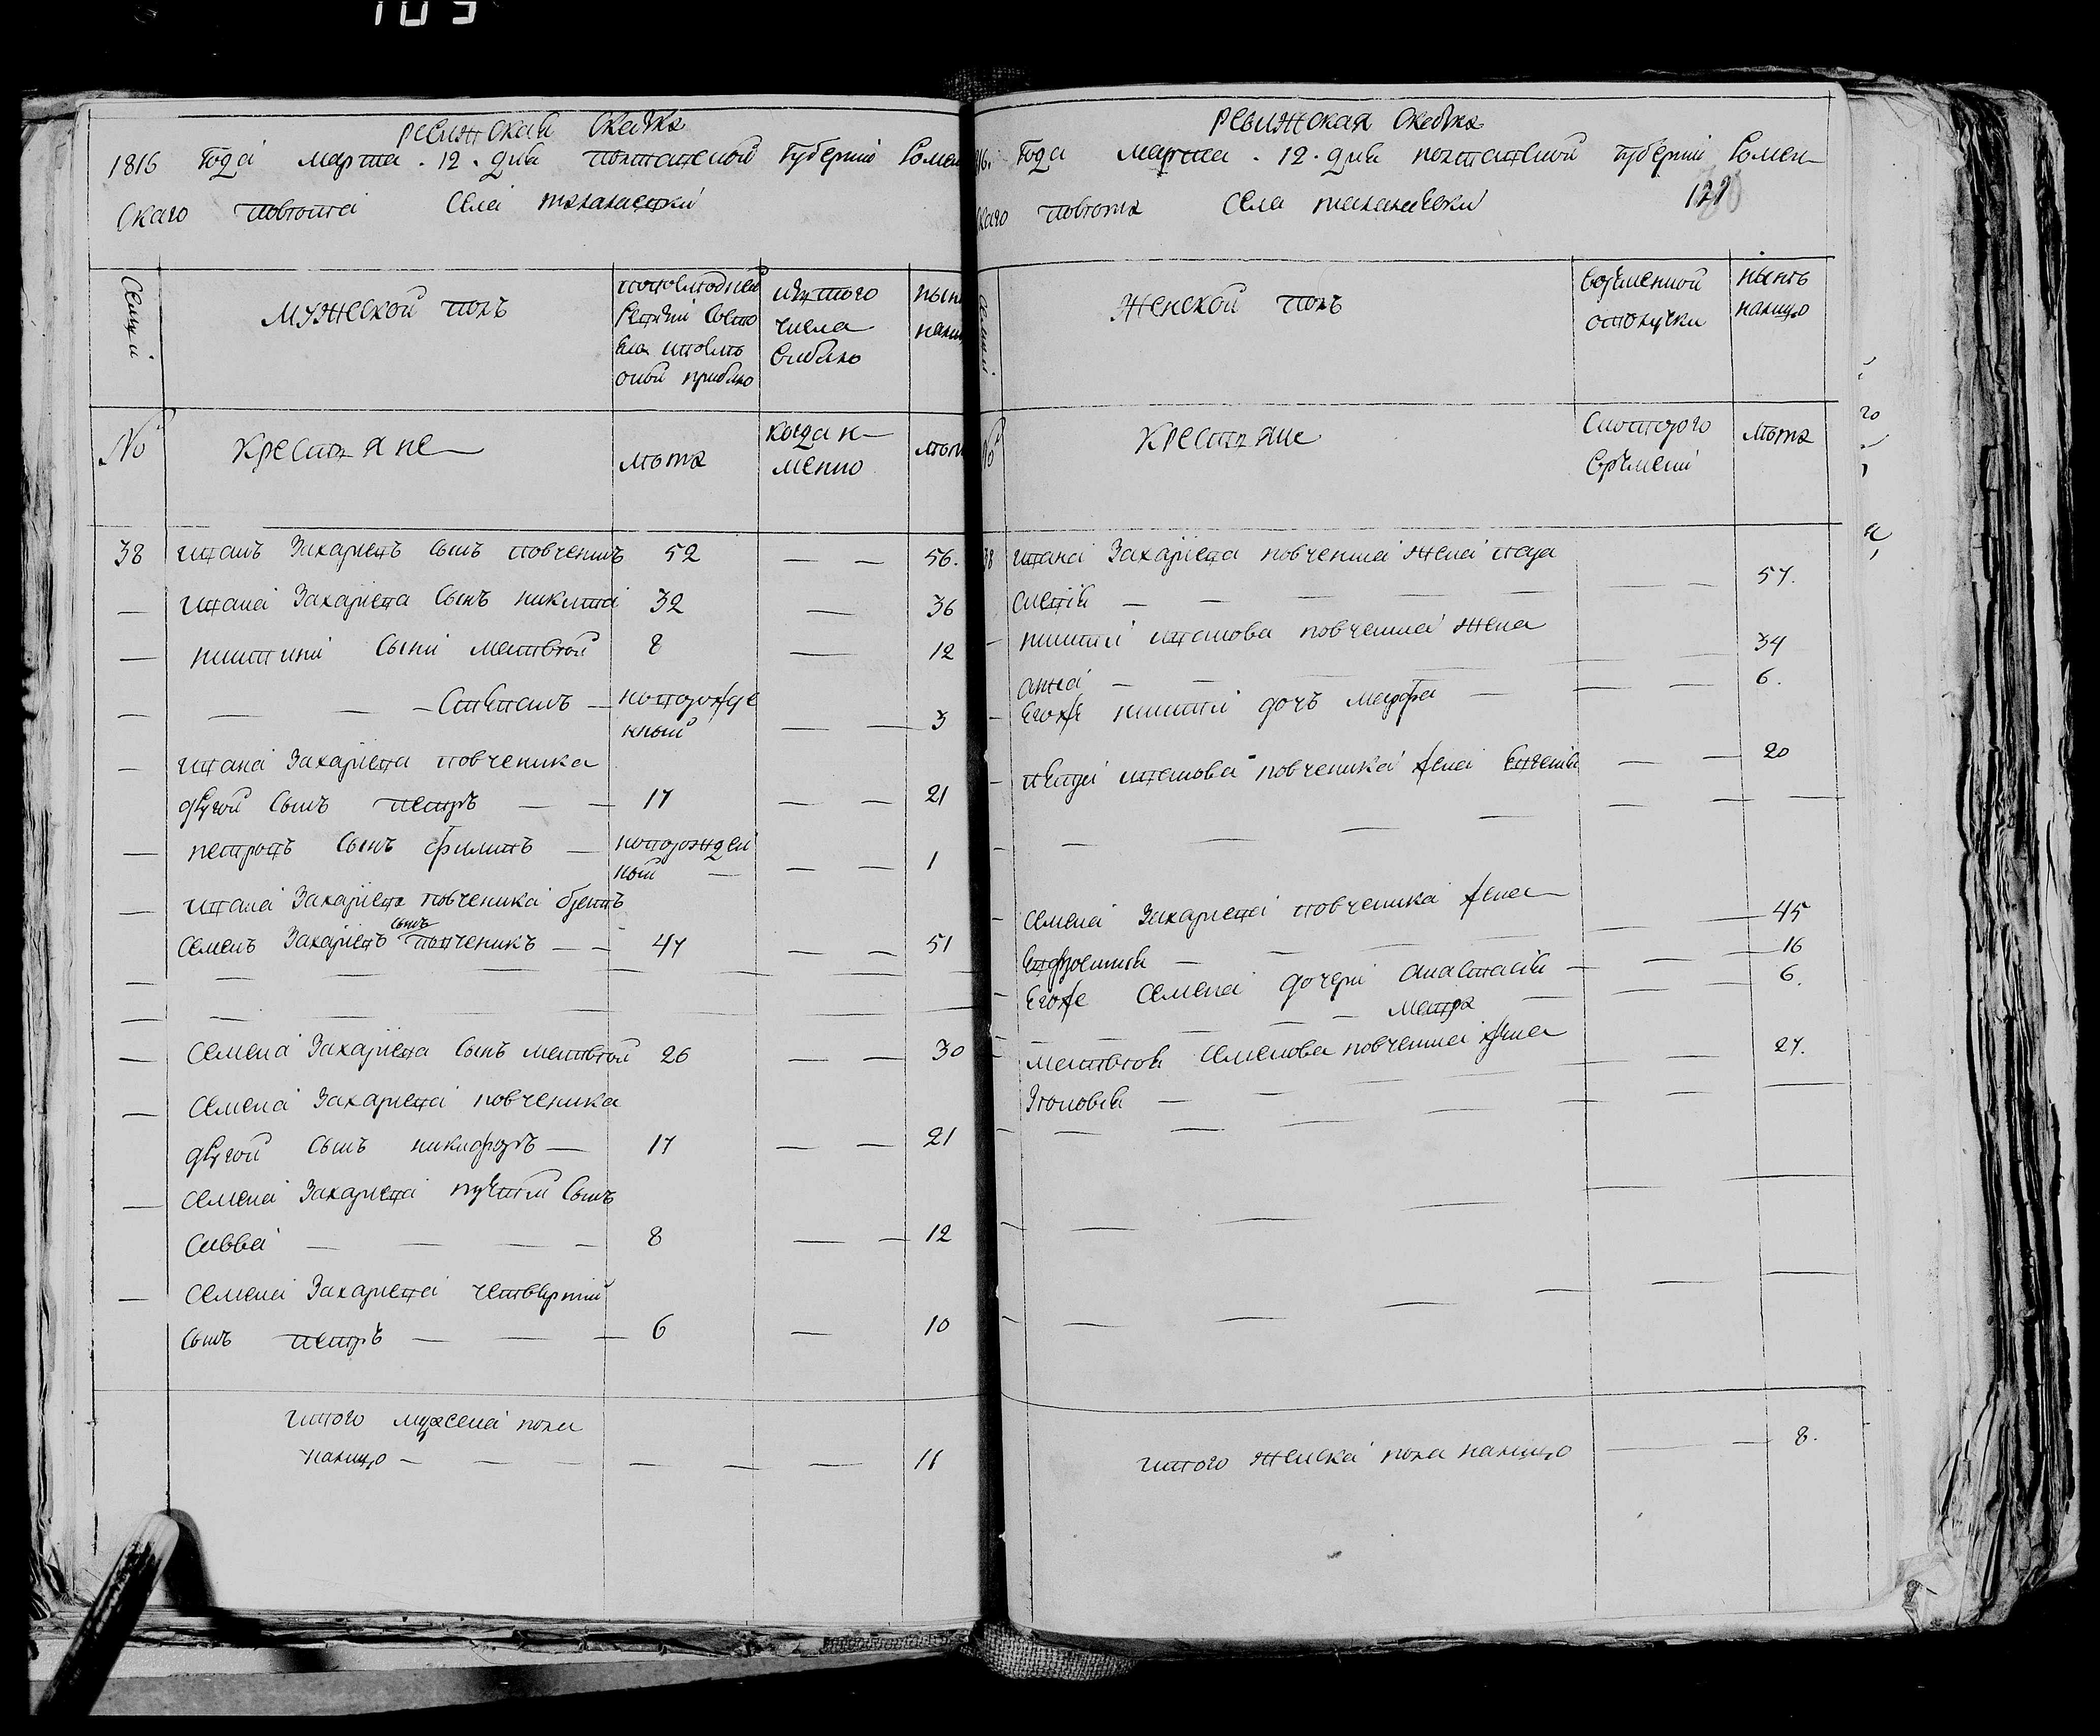 105
Ревижская Скаска
1816 года марта . 12 . дня полтавской губернии Ромен
скаго повѣта Села талалаевки
Семьи
Мужеской полъ
попослѣдней
ревизіи состо
яло ипослѣ
оной прибыло
изтого
числа
выбыло
нынѣ
налиц
№
Крестьяне
лѣта
когда и
менно
лѣт
38 иванъ Захаріевъ сынъ 52 — — 56.
— ивана Захаріева сынъ никита 32 — 36
— никити сыни матвѣй 8 — 12
— — — — Степанъ — новорожде
нный — — 3
— ивана Захаріева повченика
другой сынъ петръ — — 17 — — 21
— петровъ сынъ филипъ — новорожден
ной — — — 1
— ивана Захаріева повченика братъ
сынъ
Семенъ Захаріевъ повченикъ — — 47 — — 51
— — — — — — —
— — — — — — —
— Семена Захаріева сынъ матвѣй 26 — — 30
— Семена Захаріева повченика
другой сынъ никифоръ — 17 — — 21
— Семена Захаріева третій сынъ
Савва — — — — 8 — — 12
— Семена Захаріева четвертій
сынъ петръ — — — 6 — 10
итого мужеска пола
налицо — — — — — — 11
Ревижская Скаска
816. года марта . 12 . дня полтавской губерніи Ромен
скаго повѣта Села талалаевки
121
Семьи
Женской полъ
вовременной
отлучки
нынѣ
налицо
№
Крестьяне
Скоторого
времени
лѣта
38 ивана Захаріева жена пара
скевія — — — — — — — 57.
- никити иванова жена
анна — — — — — — 34
- егоже никити дочъ марфа — — — 6.
- петра иванова повченика жена Евгенія — — 20
- — — — — — — —
- Семена Захаріева повченика жена
Ефросинія — — — — — 45
- егоже Семена дочери анастасія — — — 16
— — — — марфа — — — 6.
- матвѣя Семенова жена
— — — — — — 27.
- — — — — — — —
- — — — — — —
- — — — — — —
итого женска пола налицо — — 8.